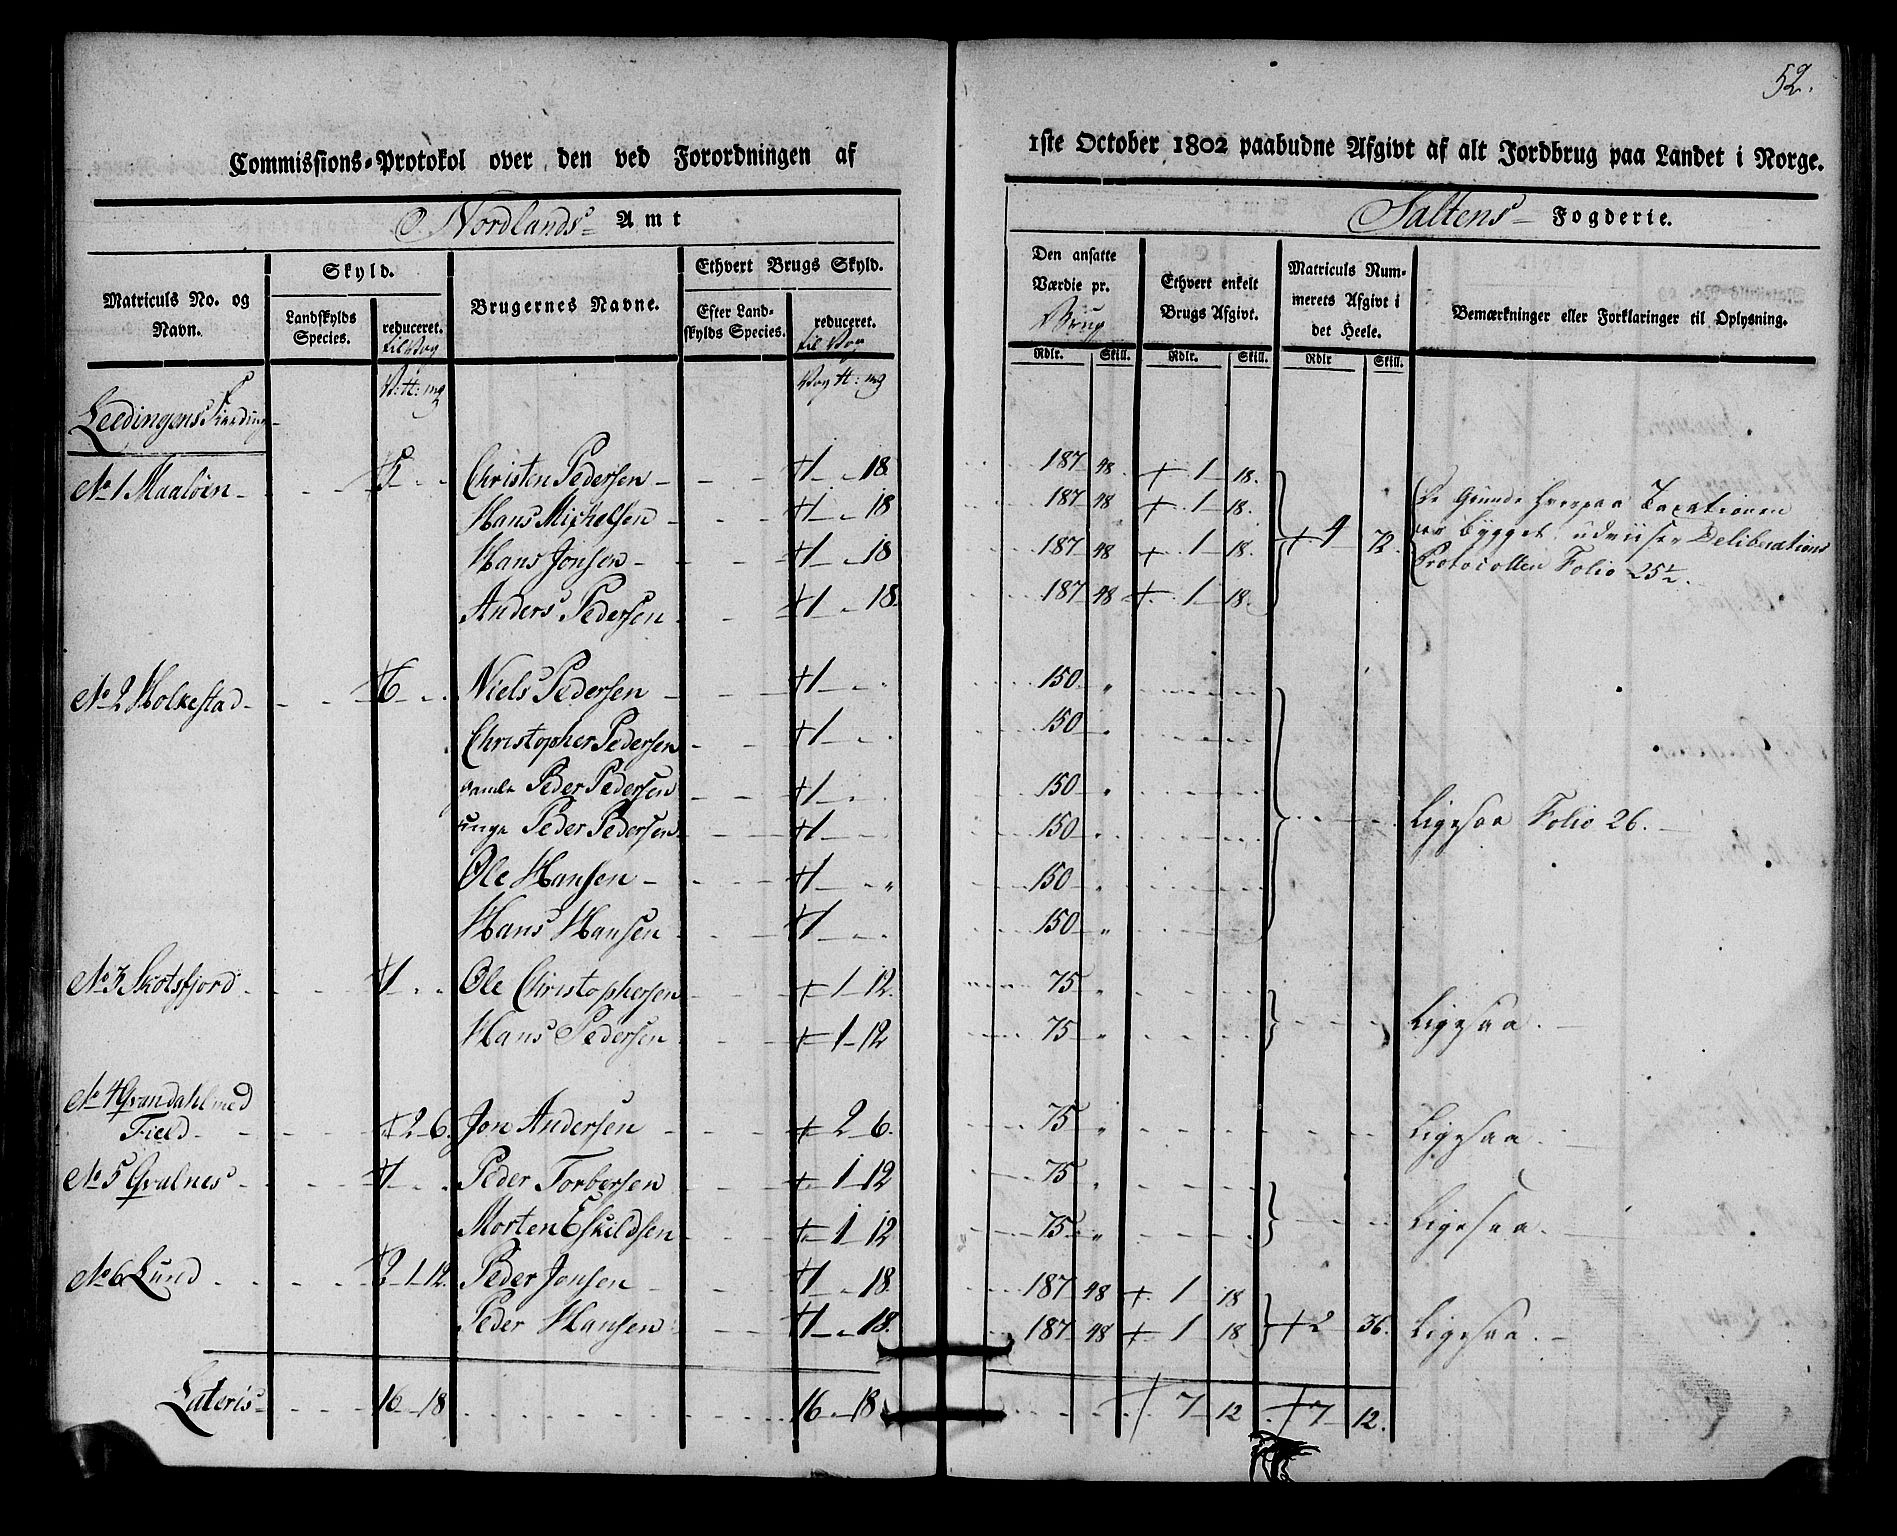 52.
Commissions-Protokol over den ved Forordningen af 1ste October 1802 paabudne Afgivt af alt Jordbrug paa Landet i Norge.
Nordlands Amt
Saltens Fogderie.
Matriculs No. og Navn.
Skyld.
Landskylds Species.
reduceret. til Vog
Brugernes Navne.
Ethvert Brugs Skyld.
Efter Landskylds Species.
reduceret. til Vog
Den ansatte Værdie pr. Brug
Ethvert enkelt Brugs Afgivt.
Matriculs Nummerets Afgivt i det Heele.
Bemærkninger eller Forklaringer til Oplysning.
Rdlr. Skill. Rdlr. Skill. Rdlr Skill.
V: ℔: mg Vog ℔: mg
Leedingens Fierding
No 1 Maaløen 5 Christen Pedersen 1 18 187 48 1 18
Hans Michelsen 1 18 187 48 1 18
Hans Jonsen 1 18 187 48 1 18 4 72
Anders Pedersen 1 18 187 48 1 18
De Grunde hvorpaa Taxationen
er bygget udviiser Deliberations
Protocollen Folio 25½.
No 2 Holkestad 6 Niels Pedersen 1 150
Christopher Pedersen 1 150
gamle Peder Pedersen 1 150
unge Peder Pedersen 1 150 Ligesaa Folio 26.
Ole Hansen 1 150
Hans Hansen 1 150
No 3 Skotsfjord 1 Ole Christophersen 1 12 75
Hans Pedersen 1 12 75 Ligesaa.
No 4 Qvandahl med
Field 2 6 Jon Andersen 2 6 75 Ligesaa.
No 5 Qvalnes 1 Peder Torbersen 1 12 75
Morten Eskildsen 1 12 75 Ligesaa.
No 6 Lund 2 1 12 Peder Jonsen 1 18 187 48 1 18
Peder Hansen 1 18 187 48 1 18 2 36 Ligesaa.
Lateris 16 18 16 18 7 12 7 12